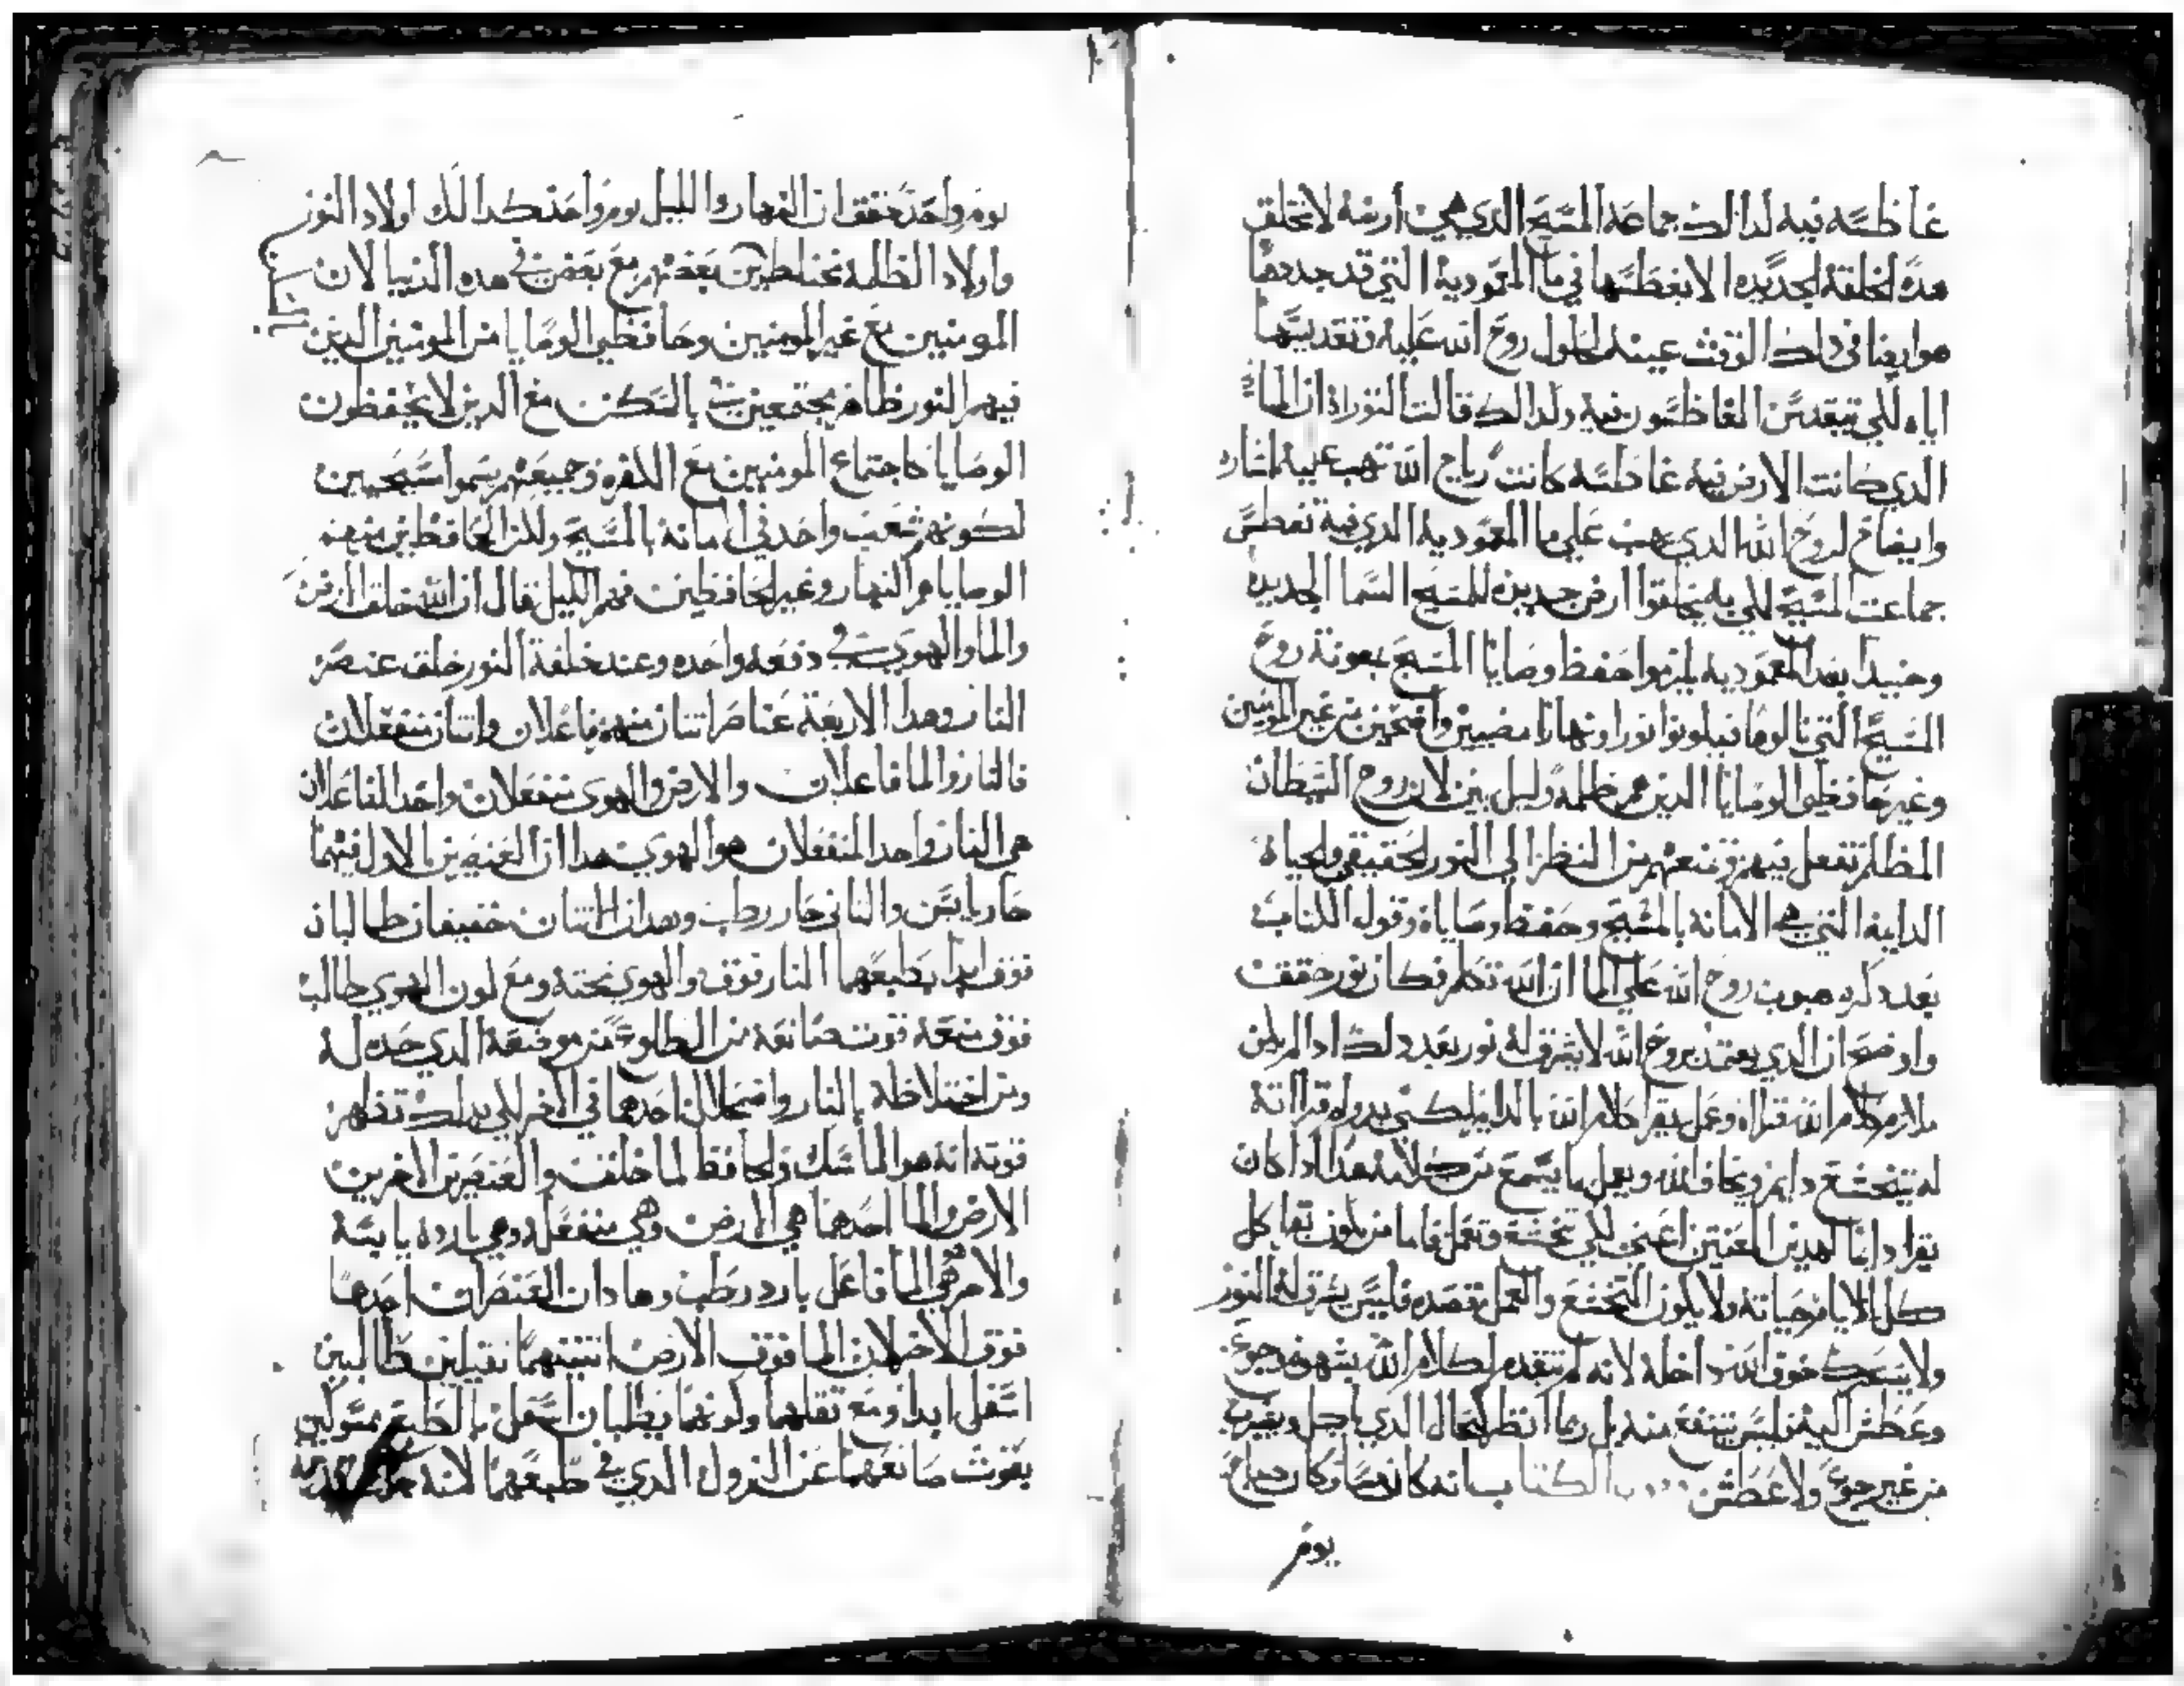 غاطسه فيه لدالك جماعة المسيح الدي هي ارضه لا تخلق
هده الخلقة الجديده الا بغطسها في ما المعمودية التي قد جددها
هو ايضا في دلك الوقت عينه لحلول روح الله عليه وتقديسها
اياه للي تتقدس الغاطسون فيه ولدالك قالت التوراة ان الما
الدي كانت الارض فيه غاطسه كانت رياح الله تهب عليه اشاره
وايضاح لروح الله الدي يهب علي ما المعمودية الدي فيه تغطس
جماعت المسيح للي به يخلقوا ارض جديده للمسيح السما الجديده
وحينيد بعد المعمودية يلزموا حفظ وصايا المسيح بمعونة روح
المسيح التي نالوها فيكونوا نورا ونهارا مضيين واضحين من غير المومنين
وغير حافظي الوصايا الدين هم ظلمه وليل بين لان روح الشيطان
المظلم تفعل فيهم وتمنعهم من النظر الي النور الحقيقي والحياه
الدايمة التي هي الامانة بالمسيح وحفظ وصاياه وقول الكتاب
بعد دكره هبوب روح الله علي الما ان الله تكلم فكان نور حقق
واوضح ان الدي يعتمد بروح الله لا يشرق له نور بعد دلك ادا لم يكن
ملازم كلام الله قراه وعمل يقرا كلام الله بالدايم لكي بدوام قرااته
له يتخشع دايم ويخاف الله ويعمل ما يسمع من كلامه هدا ادا كان
يقرا دايما لهدين المعنيين اعني للي تخشعه وتعمل فاما من يكون يقرا كل
كل الايام حياته ولا يكون التخشع والعمل قصده فليس يشرق له النور
ولا يتحرك خوف الله داخله لانه لم يتقدم لكلام الله بشهوه وجوع
وعطش اليه فليس ينتفع منه بل ربما انظر كحال الدي ياكل ويشرب
من غير جوع ولا عطش الكتاب انه كان مسا وكان صباح
يوم
يوم واحد تحقق ان النهار والليل يوم واحد كدالك اولاد النور
واولاد الظلمة مختلطين بعضهم مع بعض في هده الدنيا لان
المومنين مع غير المومنين وحافظي الوصايا من المومنين الدين
فيهم النور ظاهر مجتمعين بالسكن مع الدين لا يحفظون
الوصايا كاجتماع المومنين مع الكفره وجميعهم يسموا مسيحيين
لكونهم شعب واحد في امانة بالمسيح ولكن الحافظين منهم
الوصايا هم النهار وغير الحافظين فهم الليل قال ان الله خلق الارض
والما والهوي في دفعه واحده وعند خلقة النور خلق عنصر
النار وهدا الاربعة عناصر اتنان منهم فاعلان واتنان منفعلان
فالنار والما فاعلان والارض والهوي منفعلان واحد الفاعلان
هي النار واحد المنفعلان هو الهوي هدا ان العنصرين الاول فيهما
حار يابس والتاني حار رطب وهدان الاتنان خفيفان طالبان
فوق ابدا بطبعهما النار فوق والهوي تحته ومع لون الهوي طالب
فوق منعه قوت صانعه من الطلوع من موضعه الدي حده له
ومن اختلاطه بالنار واضمحلال احدهما في الاخر للي بدلك تظهر
قوته انه هو الماسك والحافظ لما خلق والعنصرين الاخرين
الارض والما احدهما هي الارض وهي منفعله وهي بارده يابسة
والاخر هي الما فاعل بارد رطب وهادان العنصران احدهما
فوق الاخر لان الما فوق الارض اتنينهما تقيلين طالبين
اسفل ابدا ومع تقلهما ولونهما يطلبان اسفل بالطبع ممسوكين
بقوت صانعهما عن النزول الدي في طبعهما لانه